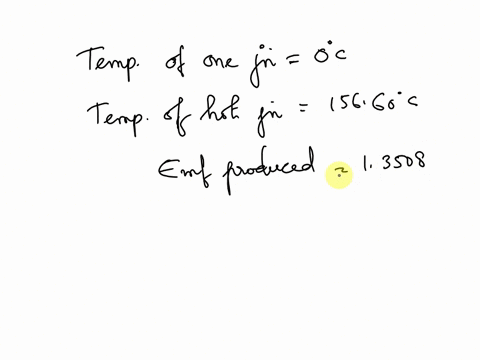 Temp. of one jn = 0°c
Temp. of hot jn = 156.60°c
Emf produced = 1.3508